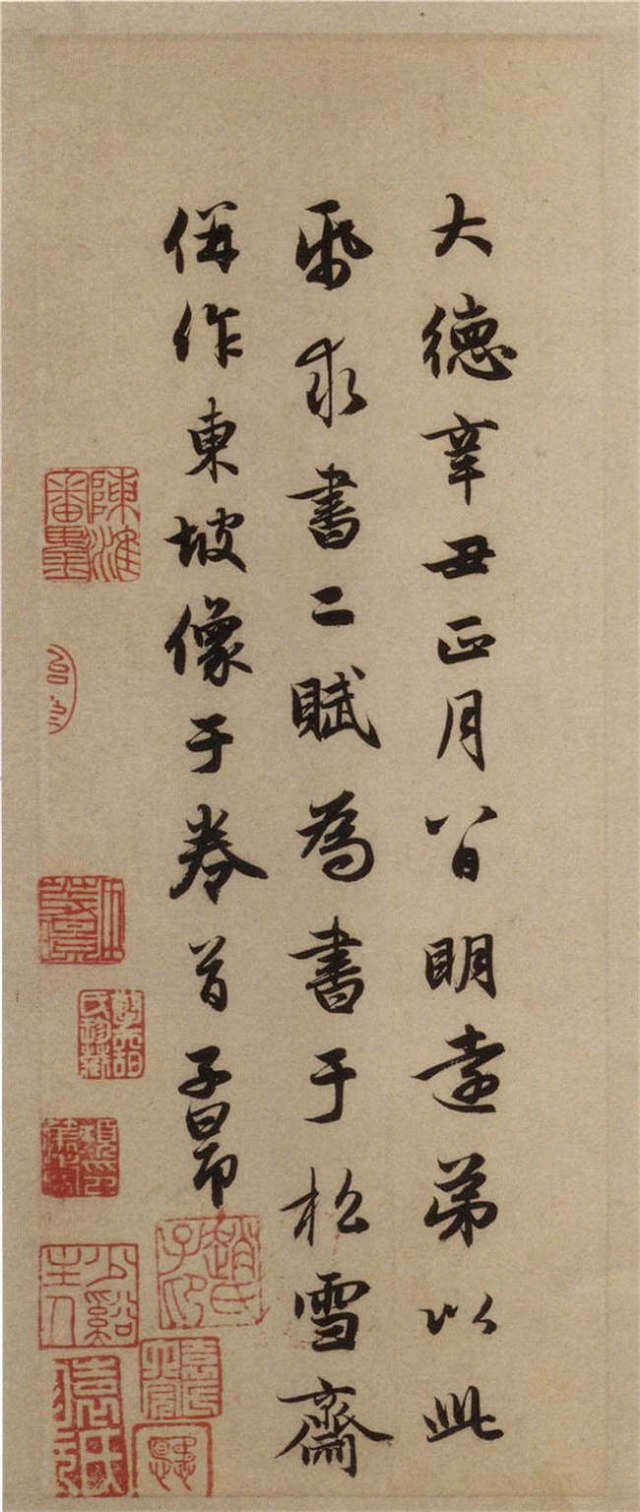 大德辛丑正月八日明遠弟以此
帋求書二賦為書于松雪齋
併作東坡像于卷首子昂
趙氏子印
陳淮審墨